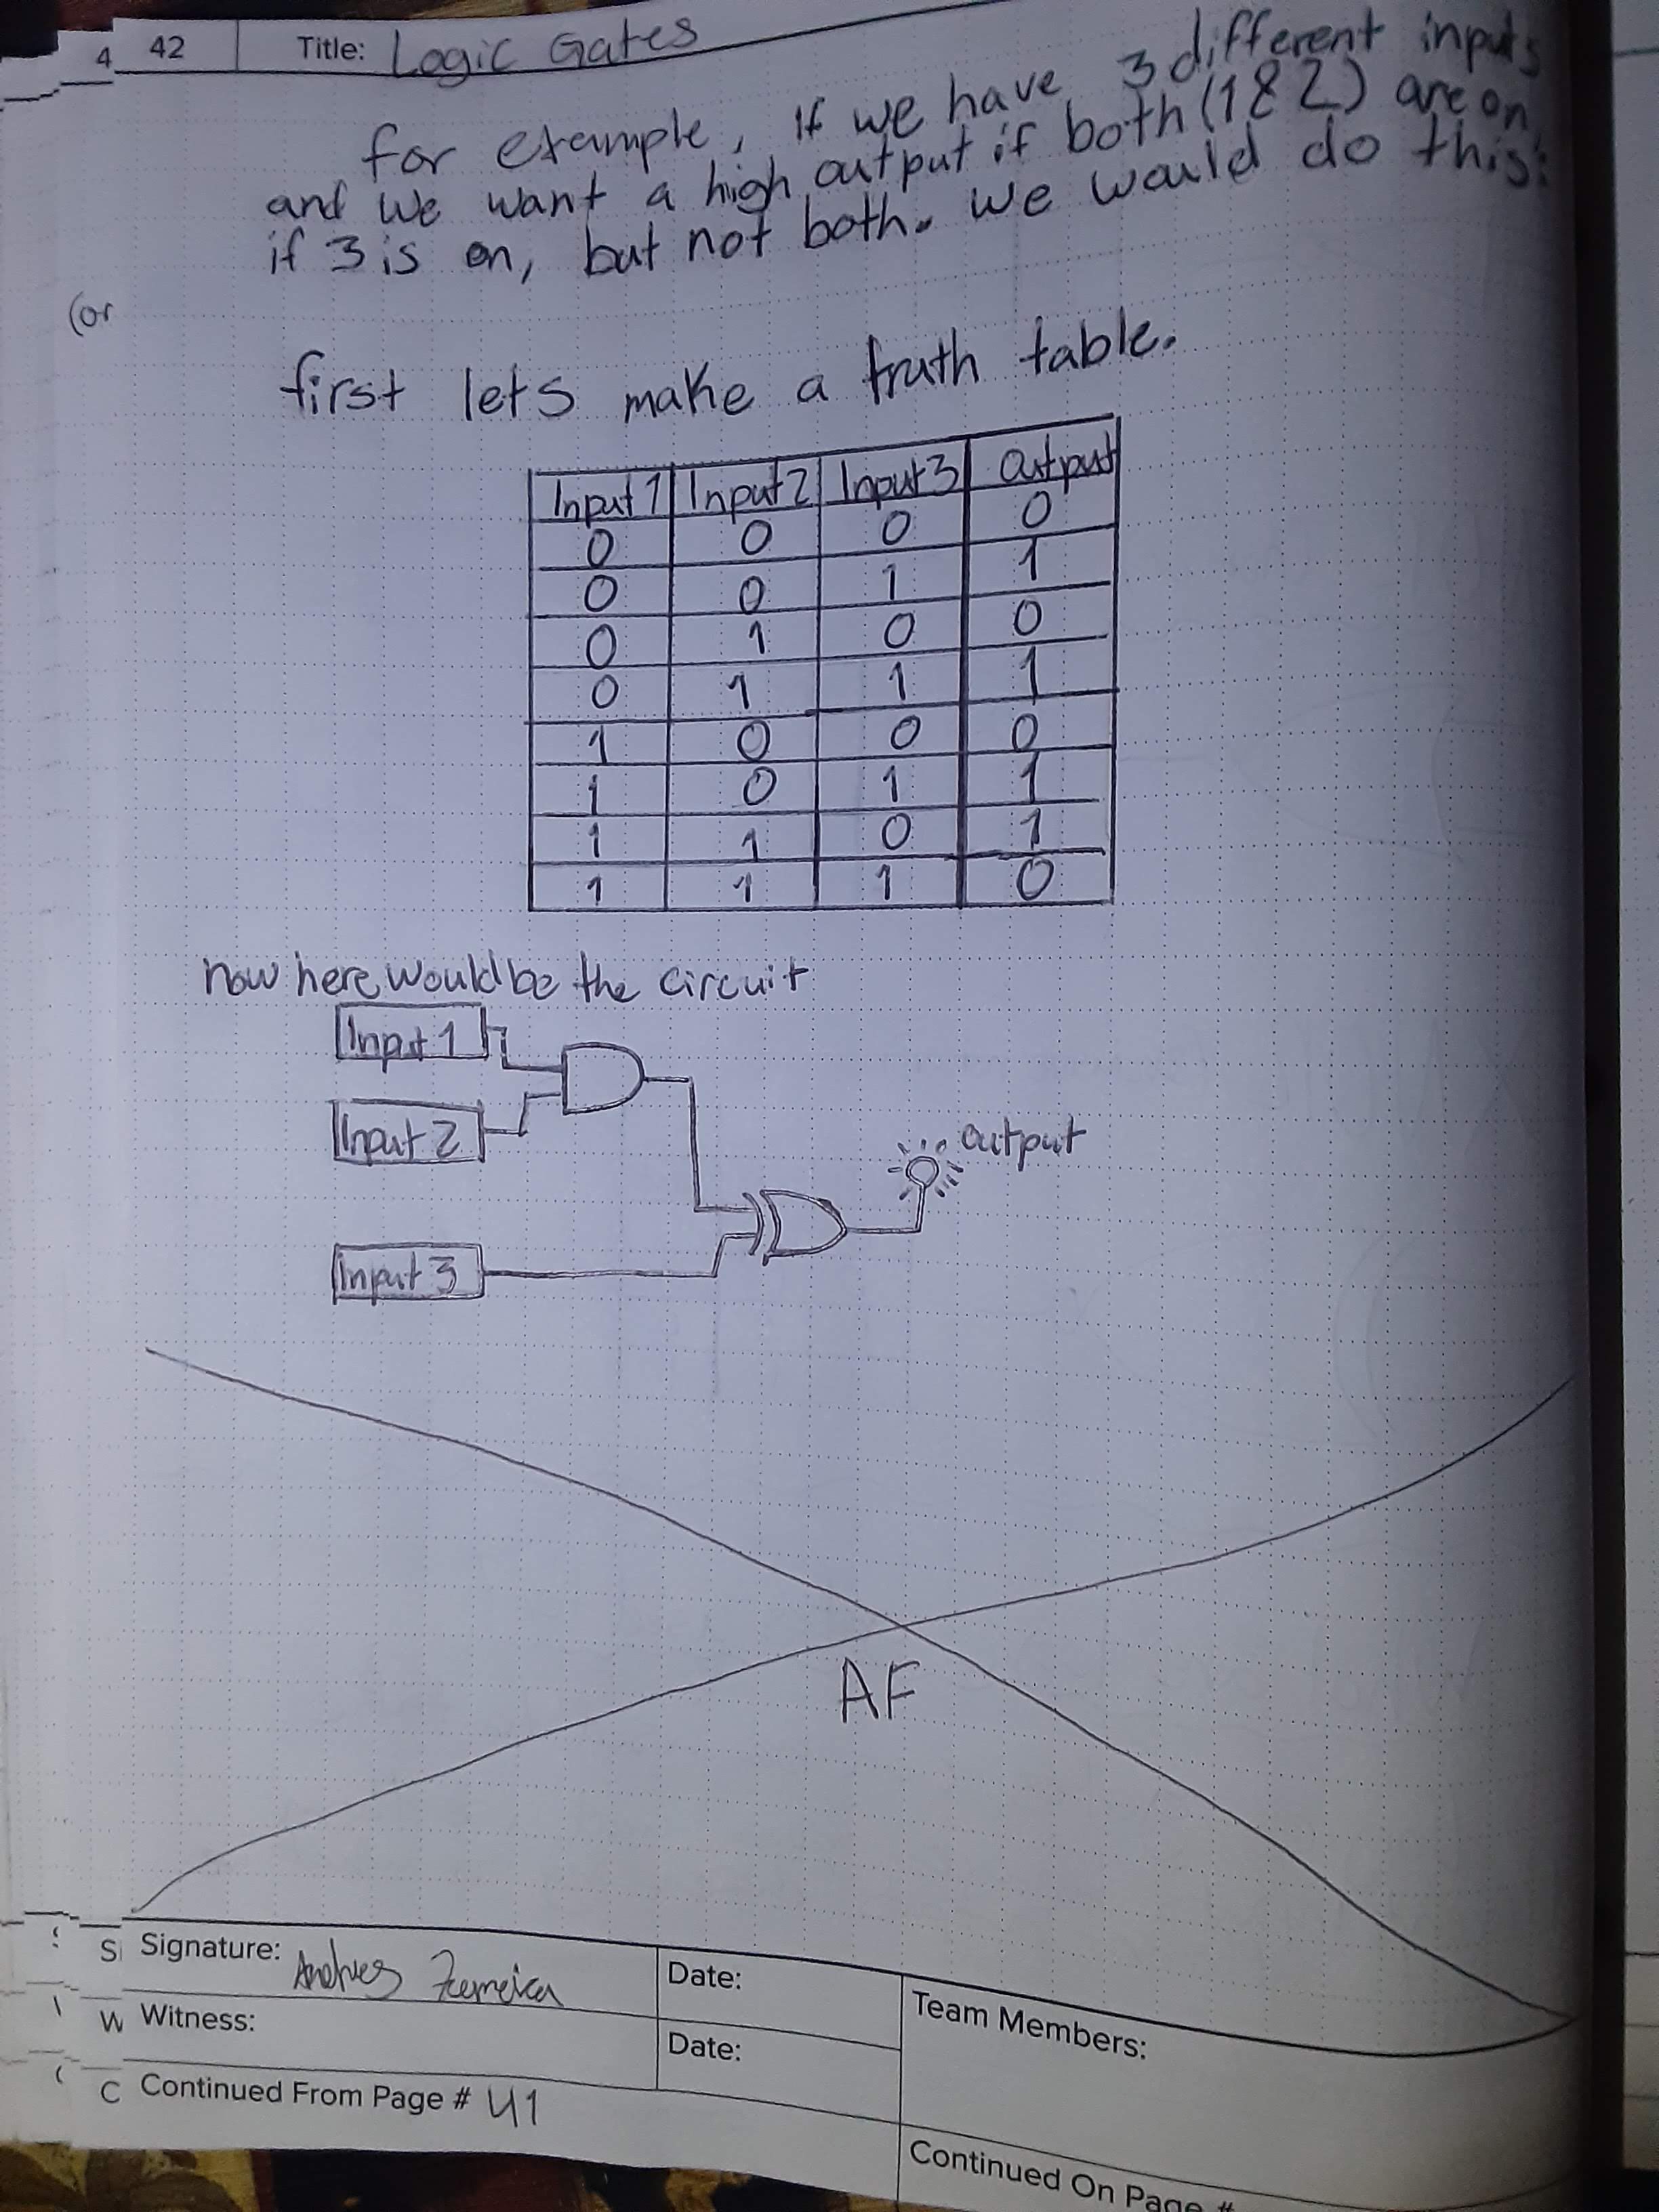 4 42 Title: Logic Gates
for example, if we have 3 different inputs
and we want a high output if both (1 & 2) are on,
(or
if 3 is on, but not both. we would do this:
first lets make a truth table.
Input 1 Input 2 Input 3 Output
0 0 0 0
0 0 1 1
0 1 0 0
0 1 1 1
1 0 0 0
1 0 1 1
1 1 0 1
1 1 1 0
now here would be the circuit
Input 1
Input 2
Output
Input 3
AF
Signature: Andres Date:
Team Members:
W Witness: Date:
C Continued From Page # 41
Continued On Page #